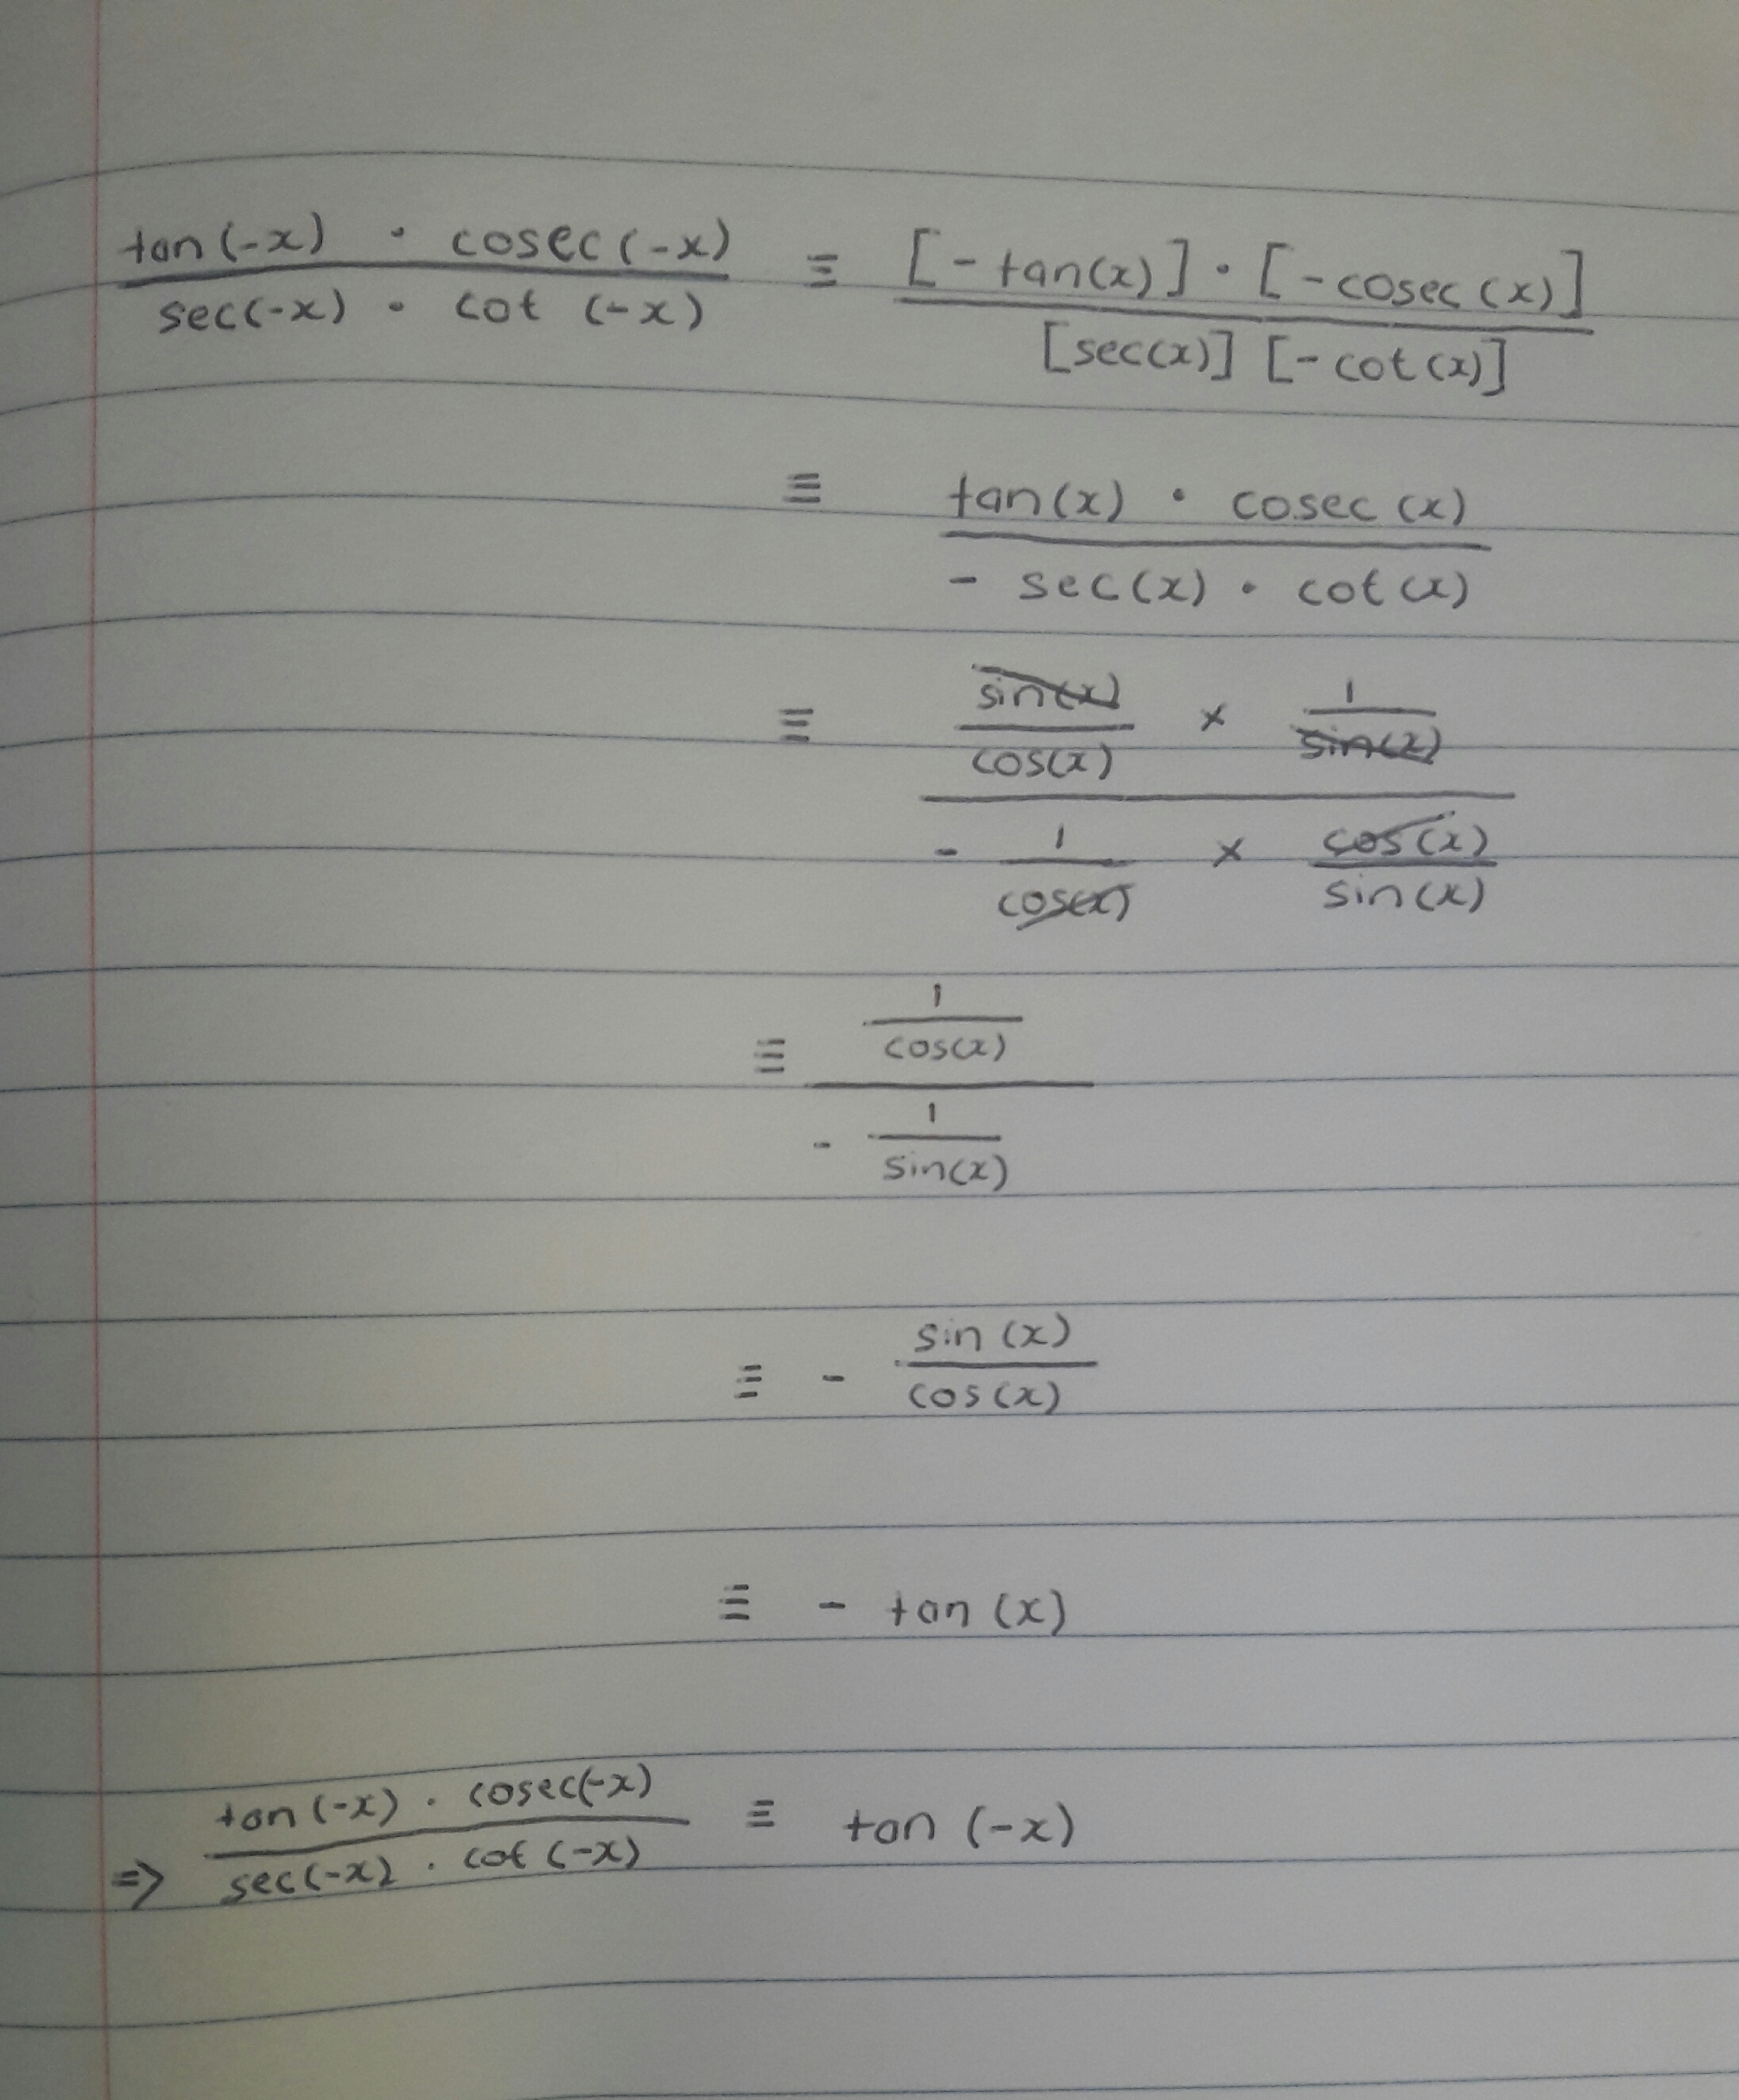 tan(-x) · cosec(-x) / sec(-x) · cot(-x) ≡ [-tan(x)] · [-cosec(x)] / [sec(x)] [-cot(x)]
≡ tan(x) · cosec(x) / - sec(x) · cot(x)
≡ sin(x)/cos(x) × 1/sin(x) / - 1/cos(x) × cos(x)/sin(x)
≡ 1/cos(x) / - 1/sin(x)
≡ - sin(x)/cos(x)
≡ - tan(x)
⇒ tan(-x) · cosec(-x) / sec(-x) · cot(-x) ≡ tan(-x)